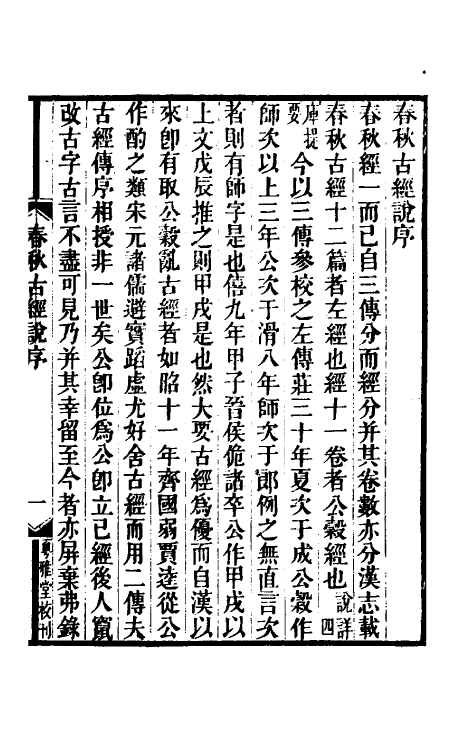 春秋古經說序
春秋經一而已自三傳分而經分并其卷數亦分漢志載
春秋古經十二篇者左經也經十一卷者公穀經也說詳四
庫提要今以三傳參校之左傳莊三十年夏次于成公穀作
師次以上三年公次于滑八年師次于郎例之無直言次
者則有師字是也僖九年甲子晉侯佹諸卒公作甲戌以
上文戊辰推之則甲戌是也然大要古經為優而自漢以
來卽有取公穀亂古經者如昭十一年齊國弱賈逵從公
作酌之類宋元諸儒避實蹈虛尤好舍古經而用二傳夫
古經傳序相授非一世矣公卽位為公卽立已經後人竄
改古字古言不盡可見乃并其幸留至今者亦屏棄弗錄
春秋古經說序
一
粤雅堂校刊